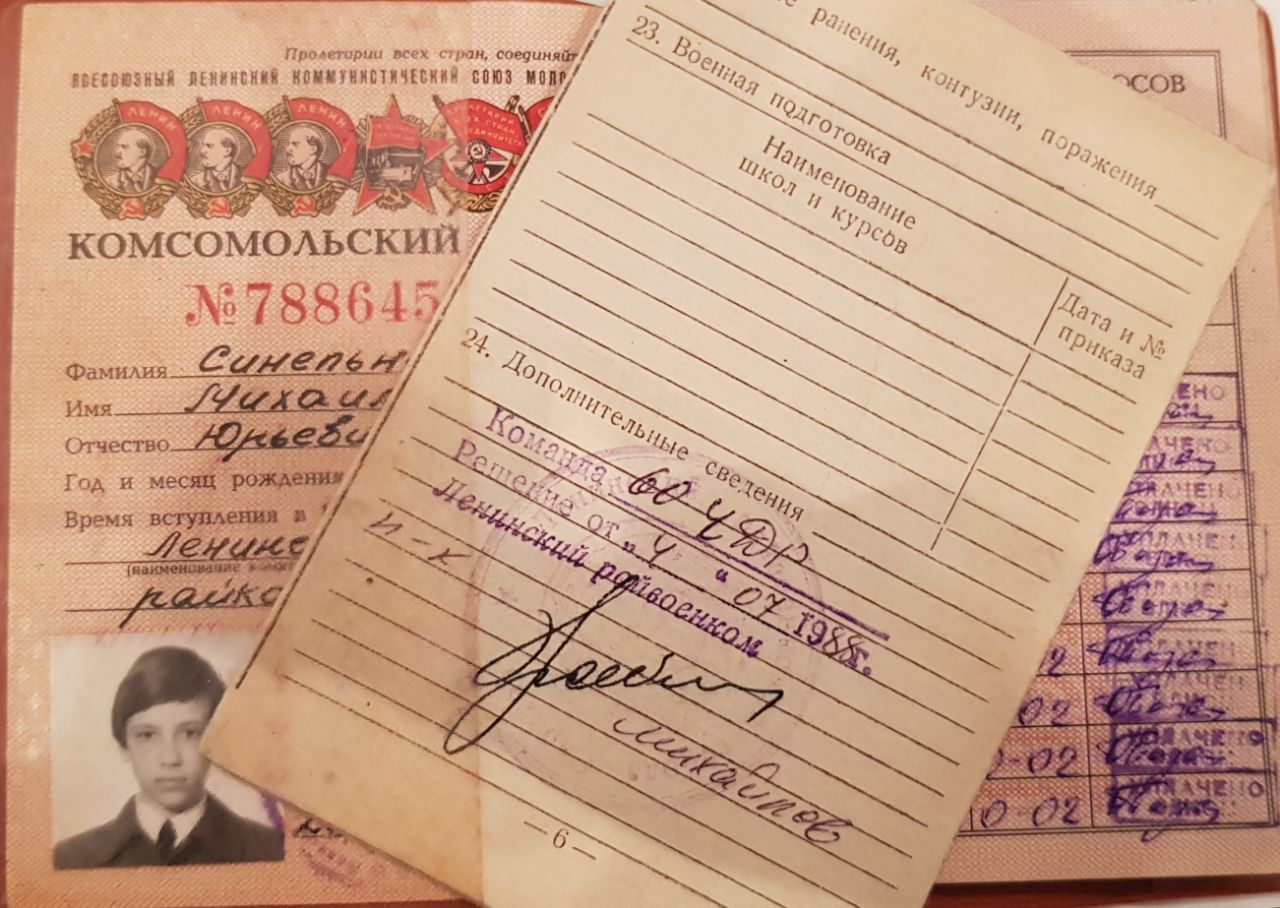 Пролетарии всех стран, соединяйт
ВСЕСОЮЗНЫЙ ЛЕНИНСКИЙ КОММУНИСТИЧЕСКИЙ СОЮЗ МОЛО
ЛЕНИН
ЛЕНИН
ЛЕНИН
КОМСОМОЛЬСКИЙ
№ 788645
Фамилия Синельн
Имя Михаил
Отчество Юрьеви
Год и месяц рождения
Время вступления в
Ленинс
райко
ранения, контузии, поражения
23. Военная подготовка
Наименование
школ и курсов
Дата и №
приказа
24. Дополнительные сведения
Команда 60
Решение от „4“ 07 1988г.
Ленинский райвоенком
п-к
Михайлов
— 6 —
ОСОВ
ЕНО
АЧЕНО
ПЛАЧЕНО
ПЛАЧЕН
02
02
0-02
0-02
ПЛАЧЕНО
ПЛАЧЕНО